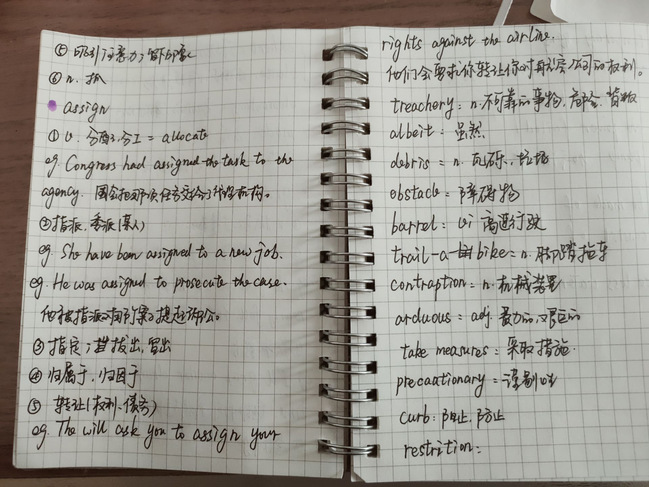 ⑤ 吸引(注意力);留下印象
⑥ n. 抓
assign
① v. 分配,分工 = allocate
eg Congress had assigned the task to the
agency. 国会把那项任务交给了代理机构。
②指派,委派(某人)
eg. She have been assigned to a new job.
eg. He was assigned to prosecute the case.
他被指派对案提起诉讼。
③ 指定;拨出,留出
④ 归属于,归因于
⑤ 转让(权利、债务)
eg. The will ask you to assign your
rights against the airline.
他们会要求你转让你对航空公司的权利。
treachery: n. 不可靠的事物,背叛
albeit: 虽然
debris = n. 瓦砾,垃圾
obstacle = 障碍物
barrel: vi 高速行驶
trail-a-bike = n. 脚踏拖车
contraption: n. 机械装置
arduous = adj. 费力的,艰巨的
take measures = 采取措施.
precaationary =
curb: 阻止,防止
restrition: